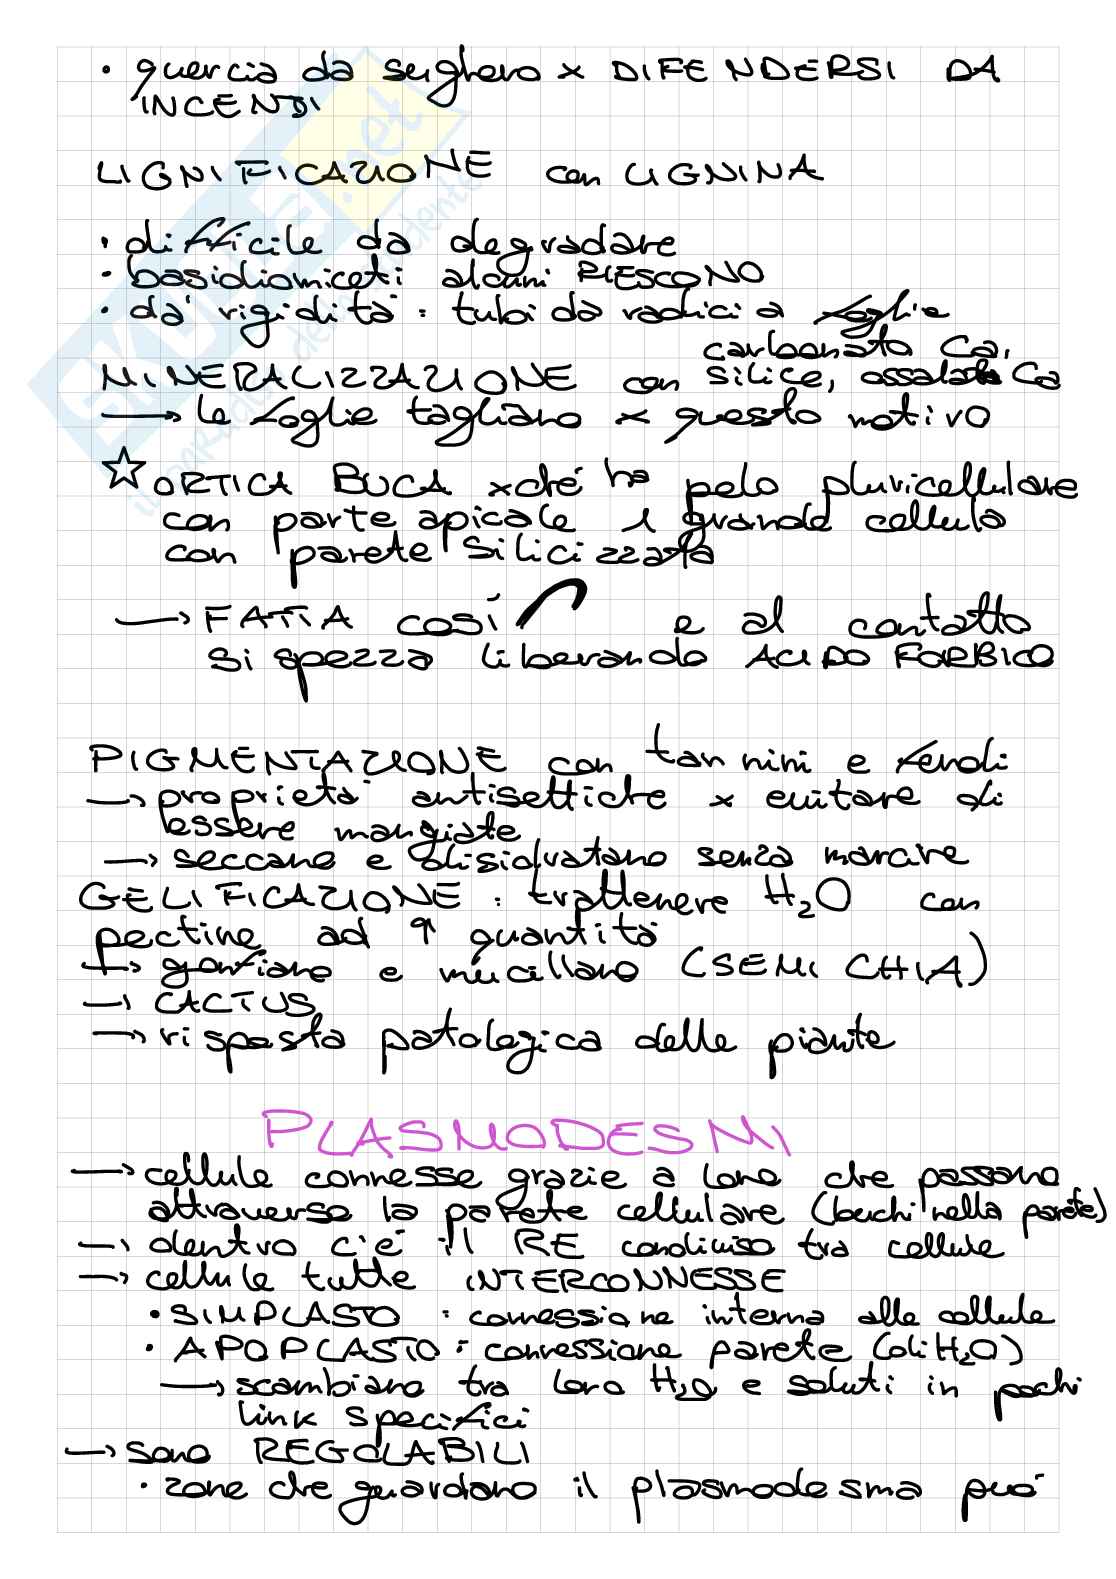 • quercia da sughero x DIFENDERSI DA
INCENDI
LIGNIFICAZIONE con LIGNINA
• difficile da degradare
• basidiomiceti alcuni RIESCONO
• dà rigidità : tubi da radici a foglie
carbonato Ca,
MINERALIZZAZIONE con silice, ossalato Ca
→ le foglie tagliano x questo motivo
☆ ORTICA BUCA xché ha pelo pluricellulare
con parte apicale 1 grande cellula
con parete silicizzata
→ FATTA così e al contatto
si spezza liberando ACIDO FORBICO
PIGMENTAZIONE con tannini e fenoli
→ proprietà antisettiche x evitare di
essere mangiate
→ seccano e disidratano senza marcire
GELIFICAZIONE : trattenere H₂O con
pectine ad ↑ quantità
→ gonfiano e mucillano (SEMI CHIA)
→ CACTUS
→ risposta patologica delle piante
PLASMODESMI
→ cellule connesse grazie a loro che passano
attraverso la parete cellulare (buchi nella parete)
→ dentro c'è il RE condiviso tra cellule
→ cellule tutte INTERCONNESSE
• SIMPLASTO : connessione interna alle cellule
• APOPLASTO : connessione parete (di H₂O)
→ scambiano tra loro H₂O e soluti in pochi
link specifici
→ sono REGOLABILI
• zone che guardano il plasmodesma può